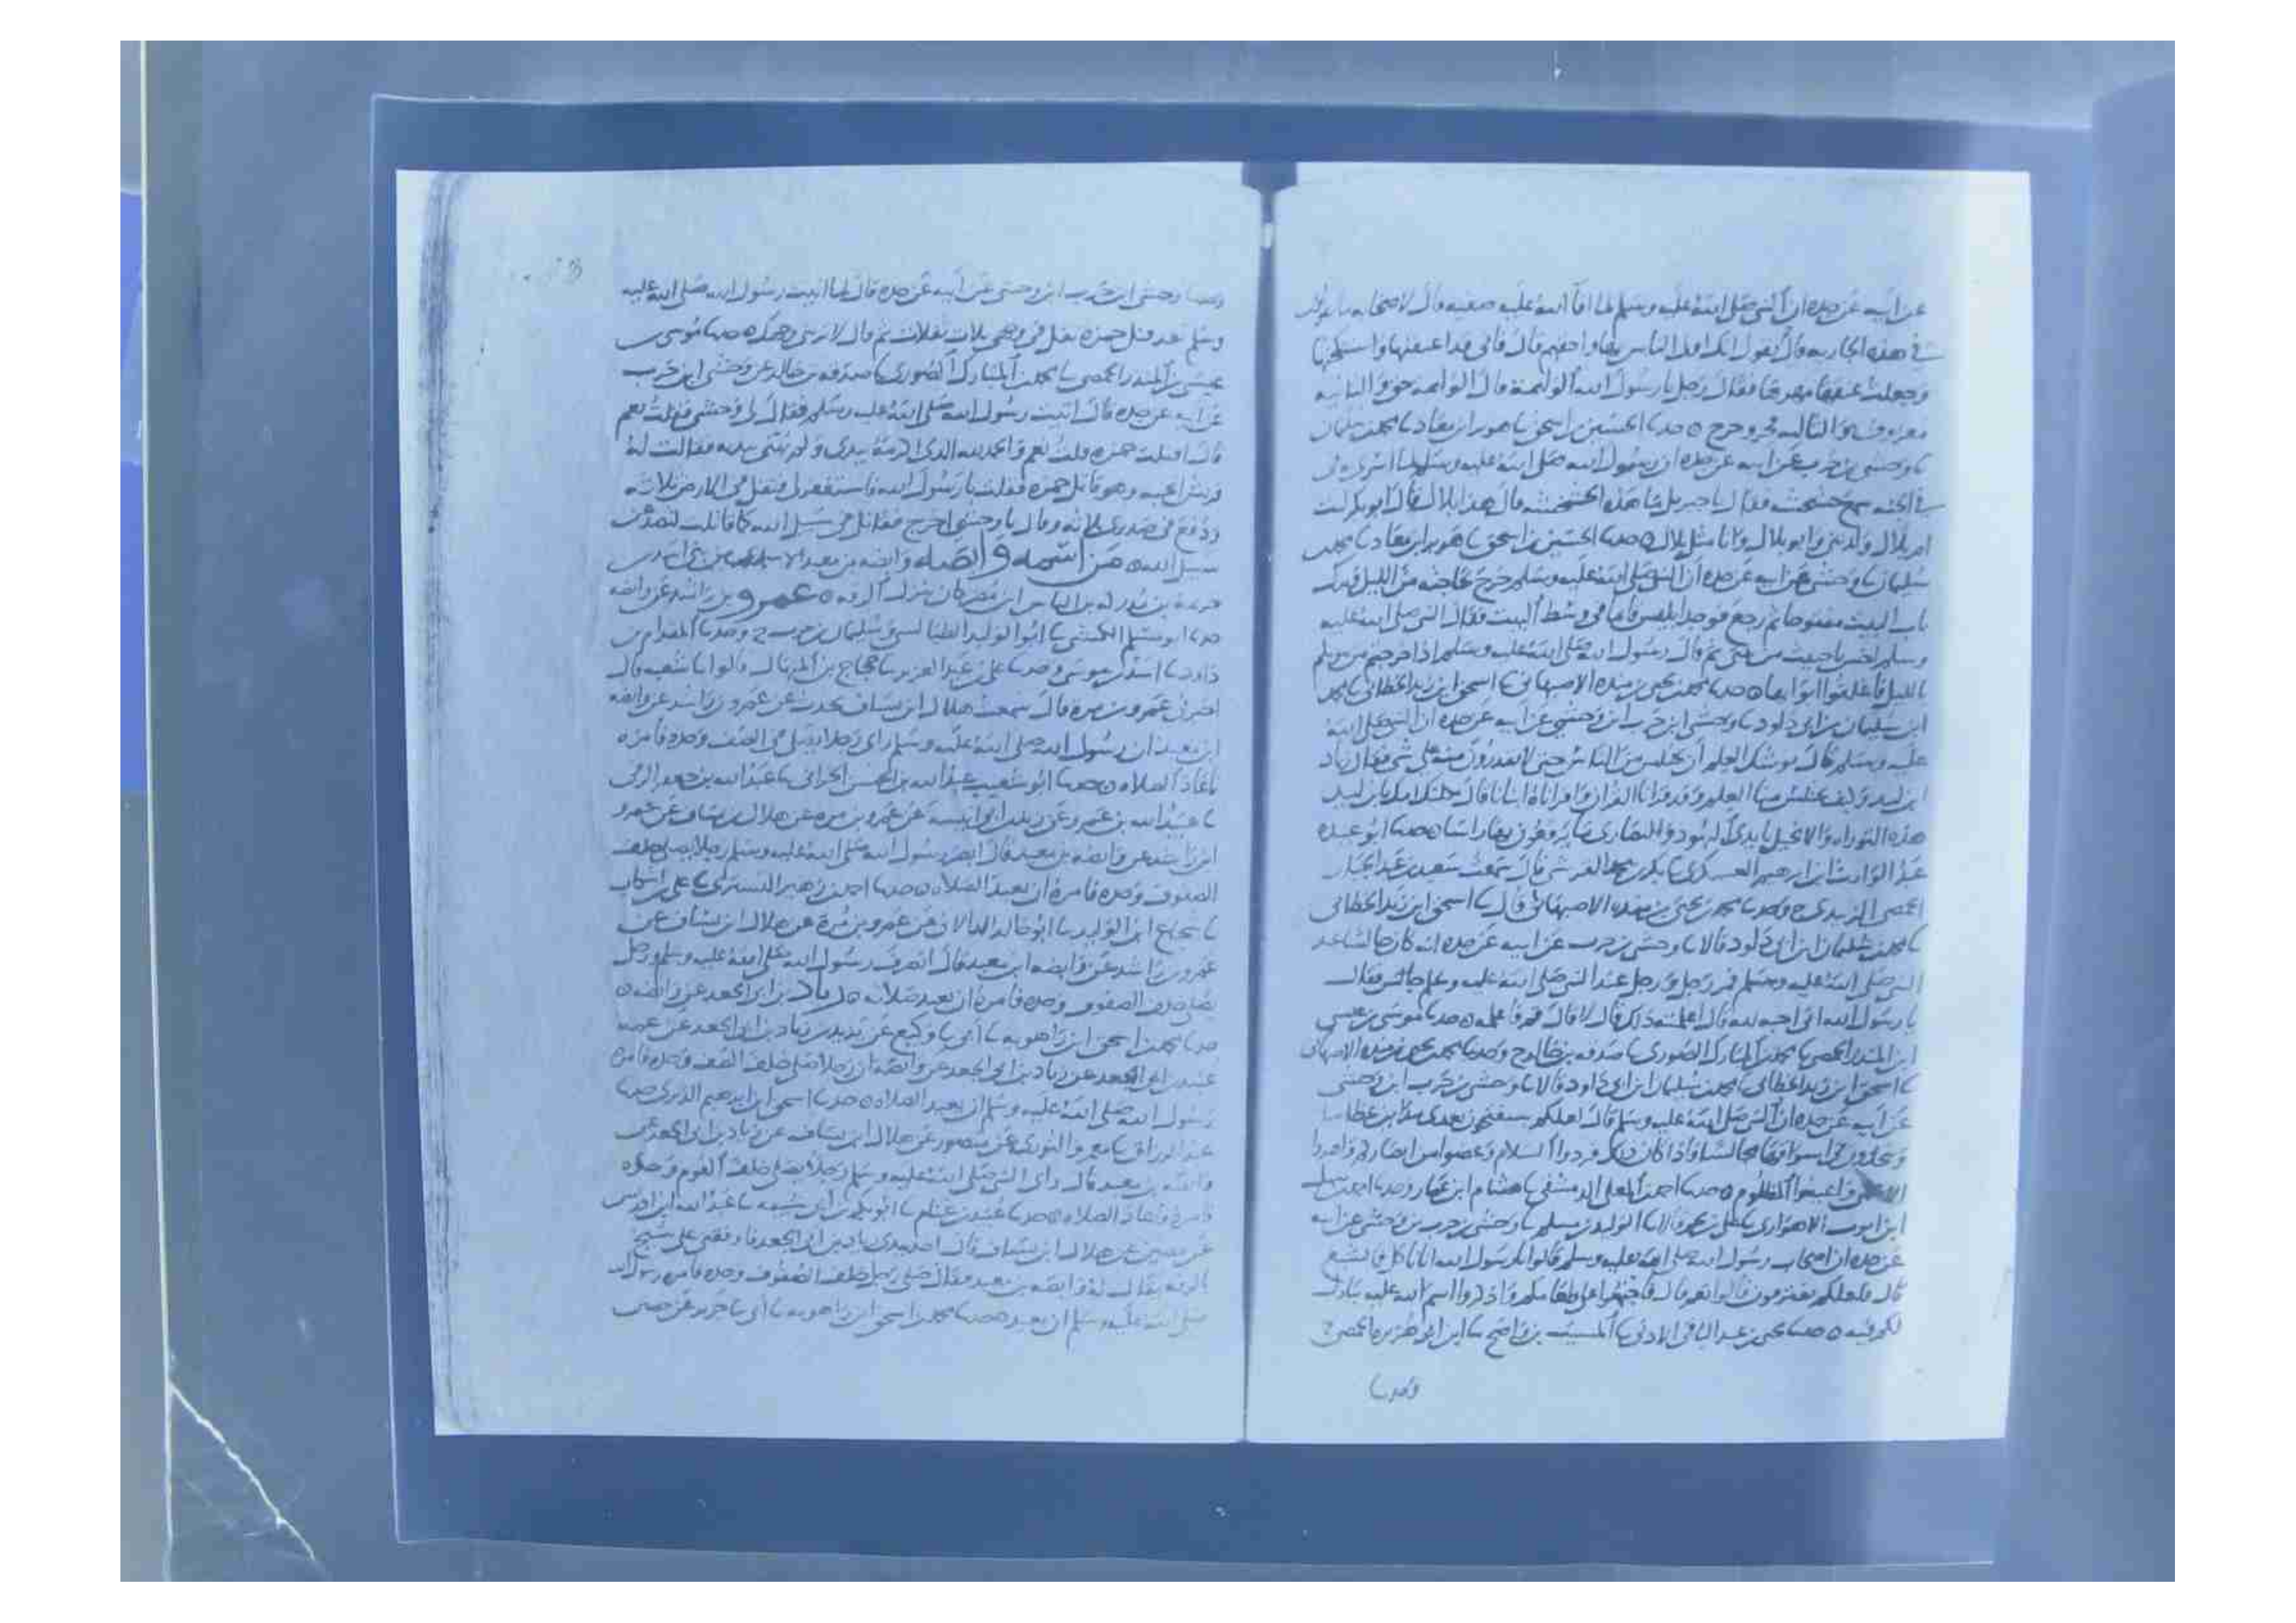 عن ابيه عن جده ان النبي صلى الله عليه وسلم لما افا الله عليه صفيه قال لاصحابه ما تقولون
في هذه الجاريه قال نقول انك اولا الناس بها واحقهم قال فاني قد اعتقتها واستنكحتها
وجعلت عتقها مهرها فقال رجل يا رسول الله الوليمة قال الوليمة حق والثانيه
معروف والثالثه فخر وحرج ه حدثنا الحسين بن اسحق نا هوبر ابن معاد نا محمد بن سليمان
نا وحشي بن حرب عن ابيه عن جده ان رسول الله صلى الله عليه وسلم لما اسري بي
في الجنه سمع خشخشه فقال يا جبريل ما هذه الخشخشه قال هذا بلال قال ابو بكر ليت
ام بلال ولدتني وابو بلال وانا مثل بلال ه حدثنا الحسين بن اسحق نا هوبر ابن معاد نا محمد بن
سليمان نا وحشي عن ابيه عن جده ان النبي صلى الله عليه وسلم خرج لحاجته من الليل فترك
باب البيت مفتوحا ثم رجع فوجد ابليس قايما في وسط البيت فقال النبي صلى الله عليه
وسلم اخس يا خبيث من بيتي ثم قال رسول الله صلى الله عليه وسلم اذا خرجتم من بيوتكم
بالليل فاغلقوا ابوابها ه حدثنا محمد بن يحيى بن منده الاصبهاني نا اسحق ابن زيد الخطابي نا محمد
ابن سليمان بن ابي داود نا وحشي ابن حرب ابن وحشي عن ابيه عن جده ان النبي صلى الله
عليه وسلم قال يوشك العلم ان يختلس من الناس حتى لا يقدرون منه على شي فقال زياد
ابن لبيد وكيف يختلس منا العلم وقد قرانا القران واقراناه ابنانا قال ثكلتك امك يا بن لبيد
هذه التوراه والانجيل بايدي اليهود والنصارى ما يرفعون بها راسا ه حدثنا ابو عبيده
عبد الوارث ابن ابرهيم العسكري نا بكر القرشي قال سمعت سعيد بن عبد الجبار
الحمصي الزبيدي ح وحدثنا محمد بن يحيى بن منده الاصبهاني قال نا اسحق ابن زيد الخطابي
نا محمد بن سليمان ابن ابي داود قالا نا وحشي بن حرب عن ابيه عن جده انه كان جالسا عند
النبي صلى الله عليه وسلم فمر رجل ورجل عند النبي صلى الله عليه وسلم جالس فقال
يا رسول الله اني احبه لله قال اعلمته ذلك قال لا قال قم فاعلمه ه حدثنا موسى بن عيسى
ابن المنذر الحمصي نا محمد بن المبارك الصوري نا صدقه بن خالد ح وحدثنا محمد بن يحيى بن منده الاصبهاني
نا اسحق ابن زيد الخطابي نا محمد بن سليمان ابن ابي داود قالا نا وحشي بن حرب ابن وحشي
عن ابيه عن جده ان النبي صلى الله عليه وسلم قال لعلكم ستفتحون بعدي مداين عظاما
وتتخذون في اسواقها مجالسا فاذا كان ذلك فردوا السلام وغضوا من ابصاركم واهدوا
الاعمى واعينوا المظلوم ه حدثنا احمد بن المعلى الدمشقي نا هشام ابن عمار وحدثنا احمد بن سهل
ابن ايوب الاهوازي نا علي بن بحر قالا نا الوليد بن مسلم نا وحشي بن حرب بن وحشي عن ابيه
عن جده ان اصحاب رسول الله صلى الله عليه وسلم قالوا يا رسول الله انا ناكل فما نشبع
قال فلعلكم تفترقون قالوا نعم قال فاجتمعوا على طعامكم واذكروا اسم الله عليه يبارك
لكم فيه ه حدثنا يحيى بن عبد الباقي الاذني نا المسيب بن واضح نا ابن الحمصي ح
وحدثنا
وحدثنا وحشي ابن حرب ابن وحشي عن ابيه عن جده قال لما اتيت رسول الله صلى الله عليه
وسلم بعد قتل حمزه تفل في وجهي ثلاث تفلات ثم قال لا تريني وجهك ه حدثنا موسى بن
عيسى بن المنذر الحمصي نا محمد بن المبارك الصوري نا صدقه بن خالد عن وحشي ابن حرب
عن ابيه عن جده قال اتيت رسول الله صلى الله عليه وسلم فقال لي وحشي فقلت نعم
قال اقتلت حمزه قلت نعم والحمد لله الذي اكرمه بيدي ولم يهني بيده فقالت له
قريش اتحبه وهو قاتل حمزه فقلت يا رسول الله فاستغفر لي فتفل في الارض ثلاثه
ودفع في صدري ثلاثه وقال يا وحشي اخرج فقاتل في سبيل الله كما قاتلت لتصد عن
سبيل الله ه من اسمه وابصه وابصه بن معبد الاسدي من بني اسد بن
خزيمة بن مدركه بن الياس ابن مضر كان ينزل الرقه ه عمرو بن راشد عن وابصه
حدثنا ابو مسلم الكشي نا ابو الوليد الطيالسي وسليمان بن حرب ح وحدثنا المقدام بن
داود نا اسد بن موسى وحدثنا علي بن عبد العزيز نا حجاج بن المنهال قالوا نا شعبه قال
اخبرني عمرو بن مره قال سمعت هلال ابن يساف يحدث عن عمرو بن راشد عن وابصه
ابن معبد ان رسول الله صلى الله عليه وسلم راى رجلا يصلي في الصف وحده فامره
باعادة الصلاه ه حدثنا ابو شعيب عبد الله بن الحسن الحراني نا عبد الله بن جعفر الرقي
نا عبيد الله بن عمرو عن زيد ابن ابي انيسه عن عمرو بن مره عن هلال بن يساف عن عمرو
ابن راشد عن وابصه بن معبد قال ابصر رسول الله صلى الله عليه وسلم رجلا يصلي خلف
الصفوف وحده فامره ان يعيد الصلاه ه حدثنا احمد بن زهير التستري نا علي بن اشكاب
نا شجاع ابن الوليد نا ابو خالد الدالاني عن عمرو بن مرة عن هلال ابن يساف عن
عمرو بن راشد عن وابصه ابن معبد قال انصرف رسول الله صلى الله عليه وسلم ورجل
يصلي خلف الصفوف وحده فامره ان يعيد صلاته ه زياد بن ابي الجعد عن وابصه ه
حدثنا محمد بن اسحق ابن راهويه نا ابي نا وكيع عن يزيد بن زياد بن ابي الجعد عن عمه
عبيد بن ابي الجعد عن زياد بن ابي الجعد عن وابصه ان رجلا صلى خلف الصف وحده فامره
رسول الله صلى الله عليه وسلم ان يعيد الصلاه ه حدثنا اسحق ابن ابرهيم الدبري حدثنا
عبد الرزاق نا معمر والثوري عن منصور عن هلال ابن يساف عن زياد بن ابي الجعد عن
وابصه بن معبد قال راى النبي صلى الله عليه وسلم رجلا يصلي خلف القوم وحده
فامره فاعاد الصلاه ه حدثنا عبيد بن غنام نا ابو بكر بن ابي شيبه نا عبد الله ابن ادريس
عن حصين عن هلال ابن يساف قال اخذ بيدي زياد بن ابي الجعد فاوقفني على شيخ
بالرقه يقال له وابصه بن معبد فقال صلى رجل خلف الصفوف وحده فامره رسول الله
صلى الله عليه وسلم ان يعيد ه حدثنا محمد بن اسحق ابن راهويه نا ابي نا جرير عن حصين